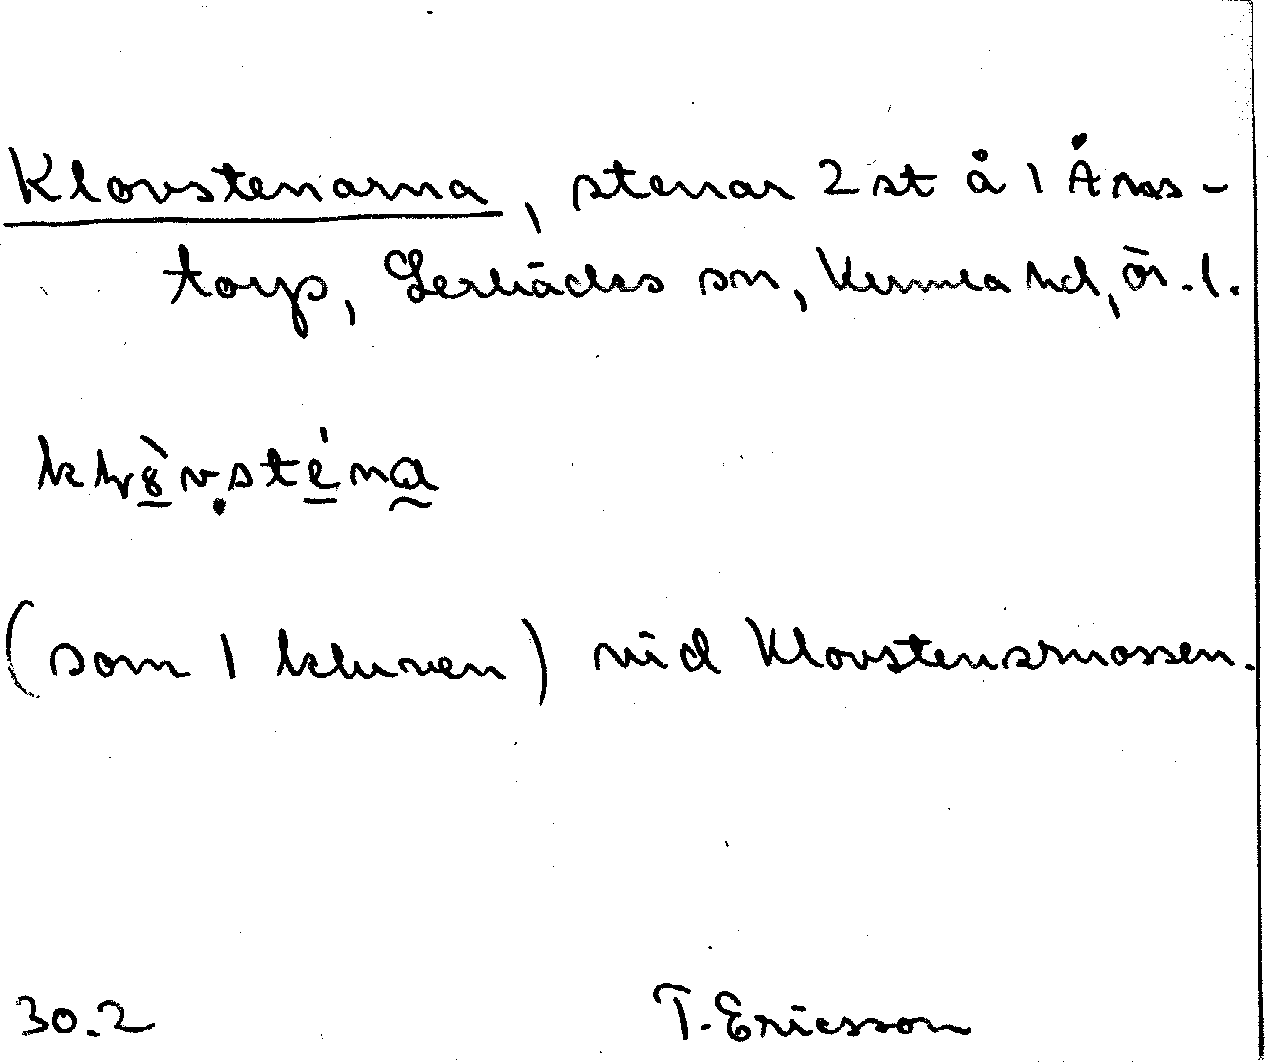 Klovstenarna, stenar 2 st å 1 Ånas-
torp, Lerbäcks sn, Kumla hd, Ör. l.
(som 1 kluven) vid Klovstensmossen.
30.2 T. Ericsson